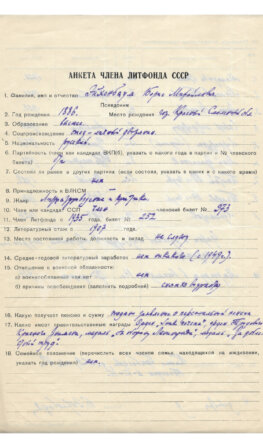 АНКЕТА ЧЛЕНА ЛИТФОНДА СССР
1. Фамилия, имя и отчество Эйхенбаум Борис Михайлович
Псевдоним
2. Год рождения 1886. Место рождения гор. Красный Смоленской
3. Образование высшее
4. Соцпроисхождение
5. Национальность русский
6. Партийность (член или кандидат ВКП/б/, указать с какого года в партии и № членского
билета)
7. Состоял ли ранее в других партиях (если состоял, указать в каких и с какого время)
нет
8. Принадлежность к ВЛКСМ —
9. Жанр Литературоведение и критика
10. Член или кандидат ССП член членский билет № 973
11. Член Литфонда с 1935 года, билет № 252
12. Литературный стаж с 1907 года.
13. Место постоянной работы, должность и оклад не служу
14. Средне-годовой литературный заработок
15. Отношение к воинской обязанности:
а) военнообязанный или нет нет
б) причины освобождения (заполнять подробно)
16. Какую получает пенсию и сумму подано заявление о персональной пенсии
17. Какие имеет правительственные награды
18. Семейное положение (перечислить всех членов семьи находящейся на иждивении,
указать год рождения) нет.